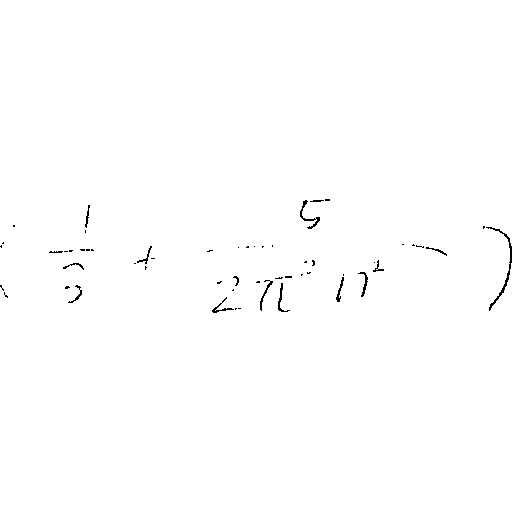 ( 1/3 + 5/(2π² n²) )